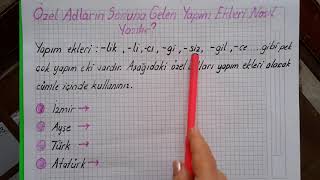 Özel Adların Sonuna Gelen Yapım Ekleri Nasıl
Yazılır?
Yapım ekleri : -lik, -li, -cı, -gi, -siz, -gil, -ce .... gibi pek
çok yapım eki vardır. Aşağıdaki özel adları yapım ekleri alacak
cümle içinde kullanınız.
İzmir →
Ayşe →
Türk →
Atatürk →